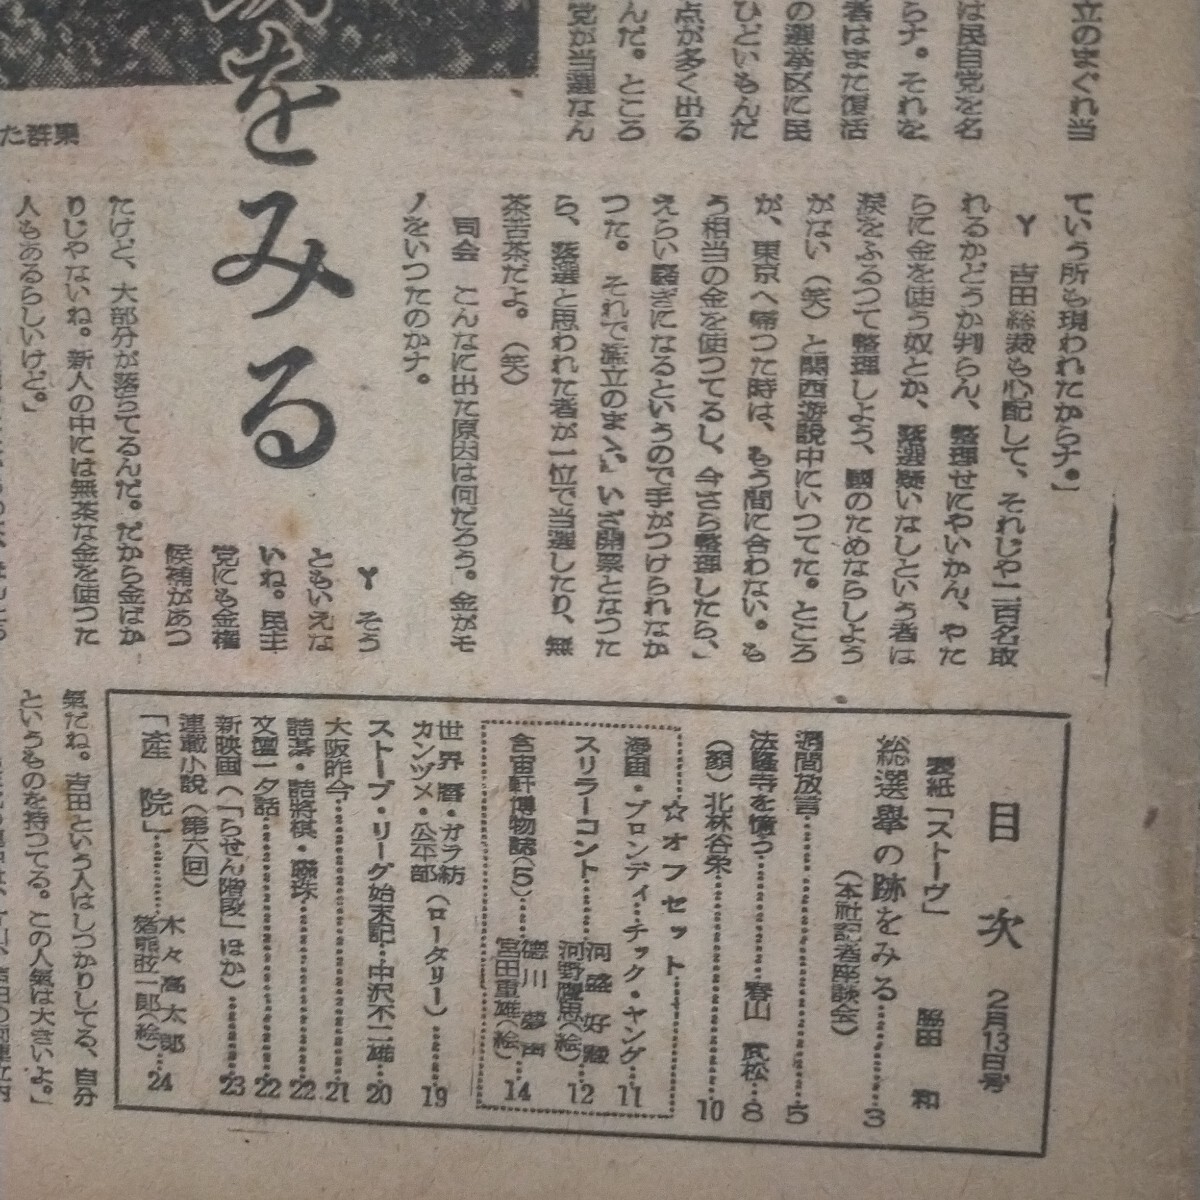 立のまぐれ当
は民自党を名
らナ。それを
者はまた復活
の選挙区に民
ひどいもんだ
点が多く出る
んだ。ところ
党が当選なん
をみる
た群衆
ていう所も現われたからナ。」
Y 吉田総裁も心配して、それじや二百名取
れるかどうか判らん、整理せにやいかん、やた
らに金を使う奴とか、落選疑いなしという者は
涙をふるつて整理しよう、國のためならしよう
がない（笑）と関西遊説中にいつてた。ところ
が、東京へ帰つた時は、もう間に合わない。も
う相当の金を使つてるし、今さら整理したら、
えらい騒ぎになるというので手がつけられなか
つた。それで濫立のまゝ、いざ開票となつた
ら、落選と思われた者が一位で当選したり、無
茶苦茶だよ。（笑）
司会 こんなに出た原因は何だろう。金がモ
ノをいつたのかナ。
Y そう
ともいえな
いね。民主
党にも金権
候補があつ
たけど、大部分が落つてるんだ。だから金ばか
りじやないね。新人の中には無茶な金を使つた
人もあるらしいけど。」
氣だね。吉田という人はしつかりしてる、自分
というものを持つてる。この人氣は大きいよ。」
目次 2月13日号
表紙「ストーヴ」 脇田 和
総選擧の跡をみる……3
（本社記者座談会）
週間放言……5
法隆寺を憶う……春山 武松…8
（顔）北林谷栄……10
☆オフセット
漫画・ブロンディ…チック・ヤング…11
スリラーコント……河盛 好蔵
河野鷹思（絵）…12
含宙軒博物誌（5）……徳川 夢声
宮田重雄（絵）…14
世界暦・ガラ紡
カンヅメ・公卒部（ロータリー）……19
ストーブ・リーグ始末記…中沢不二雄…20
大阪昨今……21
詰碁・詰将棋・聯珠……22
文壇一夕話……22
新映画（「らせん階段」ほか）……23
連載小説（第六回）
「産 院」……木々高太郎
猪熊弦一郎（絵）…24